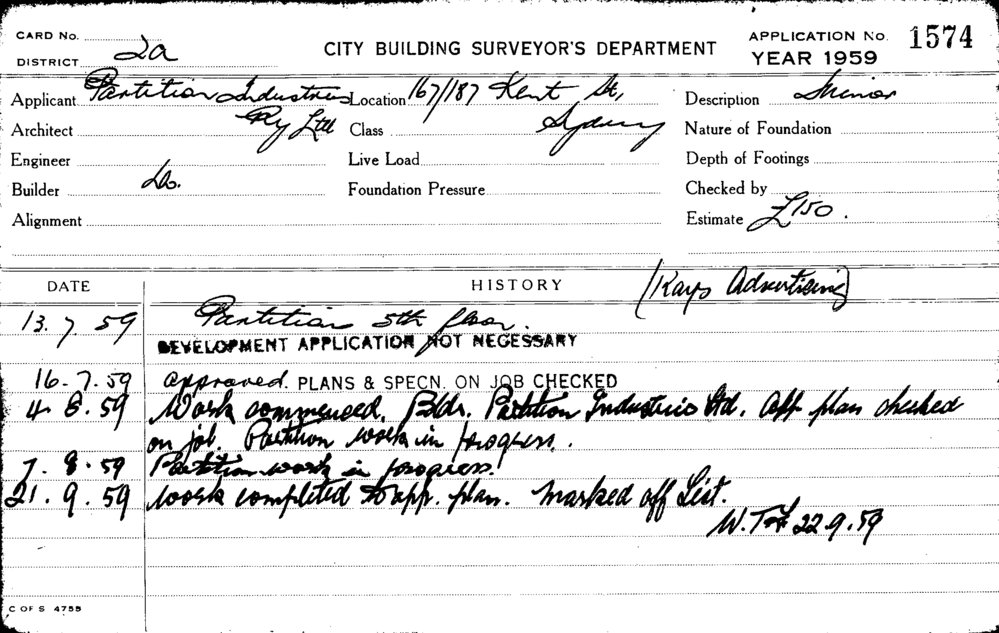 CARD No.
DISTRICT 2a
CITY BUILDING SURVEYOR'S DEPARTMENT
APPLICATION No. 1574
YEAR 1959
Applicant Partition Industries Pty Ltd
Location 167/187 Kent St, Sydney
Description Minor
Architect
Class
Nature of Foundation
Engineer
Live Load
Depth of Footings
Builder Do.
Foundation Pressure
Checked by
Alignment
Estimate £150.
DATE
HISTORY
(Kays Advertising)
13.7.59 Partition 5th floor.
DEVELOPMENT APPLICATION NOT NECESSARY
16-7.59 approved. PLANS & SPECN. ON JOB CHECKED
4.8.59 Work commenced. Bldr. Partition Industries Ltd. App plan checked
on job. Partition work in progress.
7.8.59 Partition work in progress.
21.9.59 Work completed to app. plan. Marked off List.
22.9.59
C OF S 4755